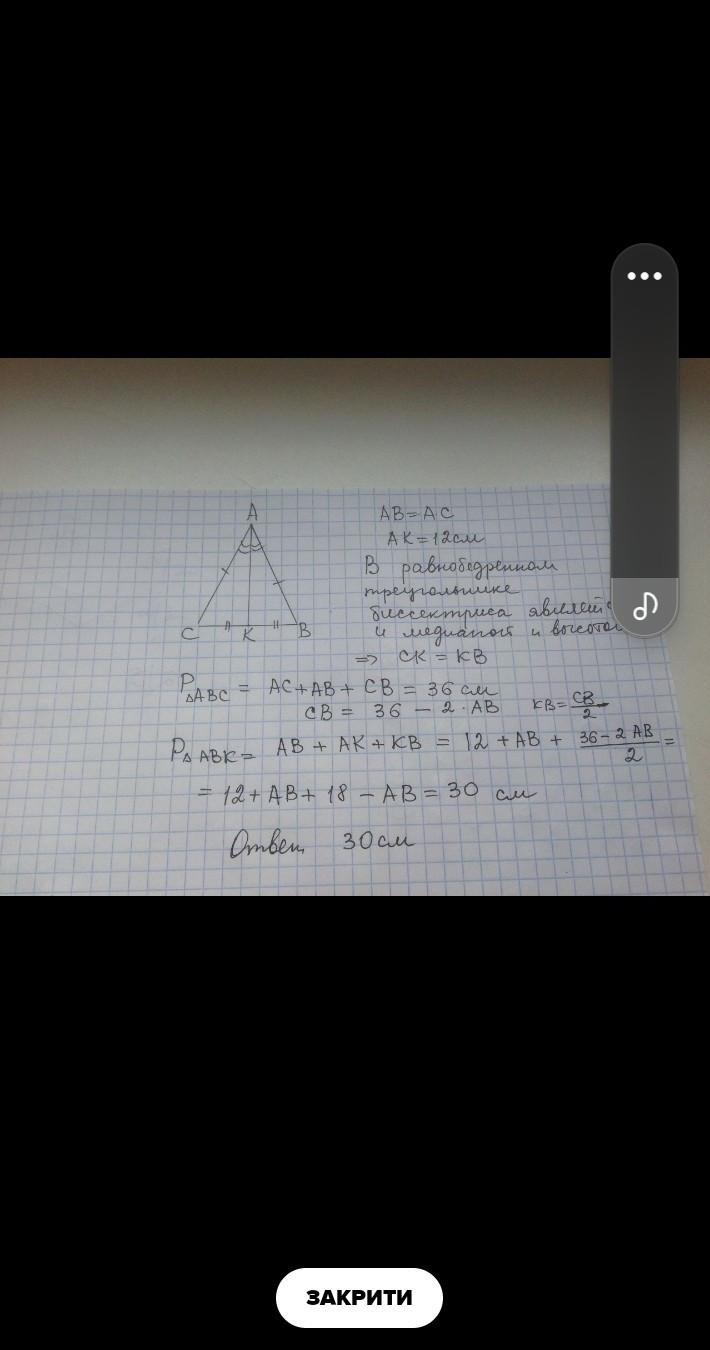 A
C K B
AB=AC
AK=12см
В равнобедренном
треугольнике
биссектриса
и медианой и
=> CK = KB
P△ABC = AC+AB+ CB = 36 см
CB = 36 - 2·AB KB=CB/2
P△ABK= AB + AK+KB = 12 +AB + (36-2 AB)/2 =
= 12+ AB+ 18 - AB = 30 см
Ответ 30см
ЗАКРИТИ